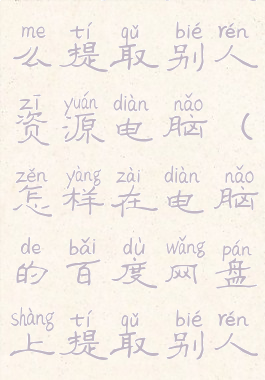 me tí qǔ bié rén
么提取别人
zī yuán diàn nǎo
资源电脑（
zěn yàng zài diàn nǎo
怎样在电脑
de bǎi dù wǎng pán
的百度网盘
shàng tí qǔ bié rén
上提取别人